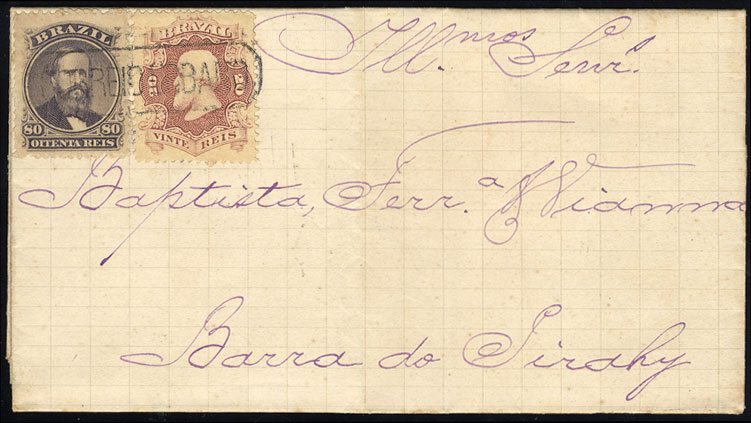 BRAZIL
80 80
OITENTA REIS
BRAZIL
20 20
VINTE REIS
Ill.mos Senrs.
Baptista, Ferr.a & Vianna
Barra do Pirahy